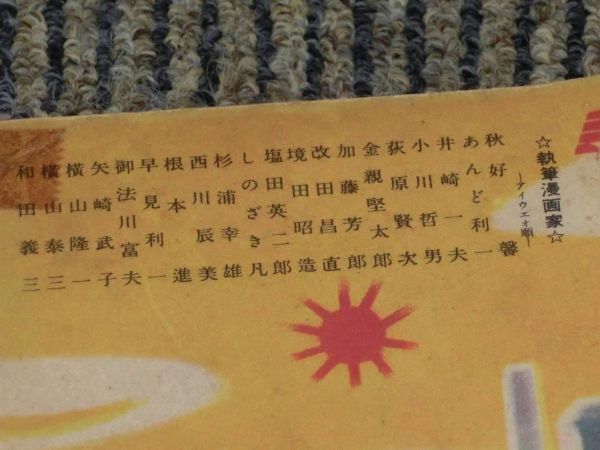 ☆執筆漫画家☆
―アイウエオ順―
秋好馨
あんど利一
井崎一夫
小川哲男
荻原賢次
金親堅太郎
加藤芳郎
改田昌直
境田昭造
塩田英二郎
しのざき凡
杉浦幸雄
西川辰美
根本進
早見利一
御法川富夫
矢崎武子
横山隆一
横山泰三
和田義三